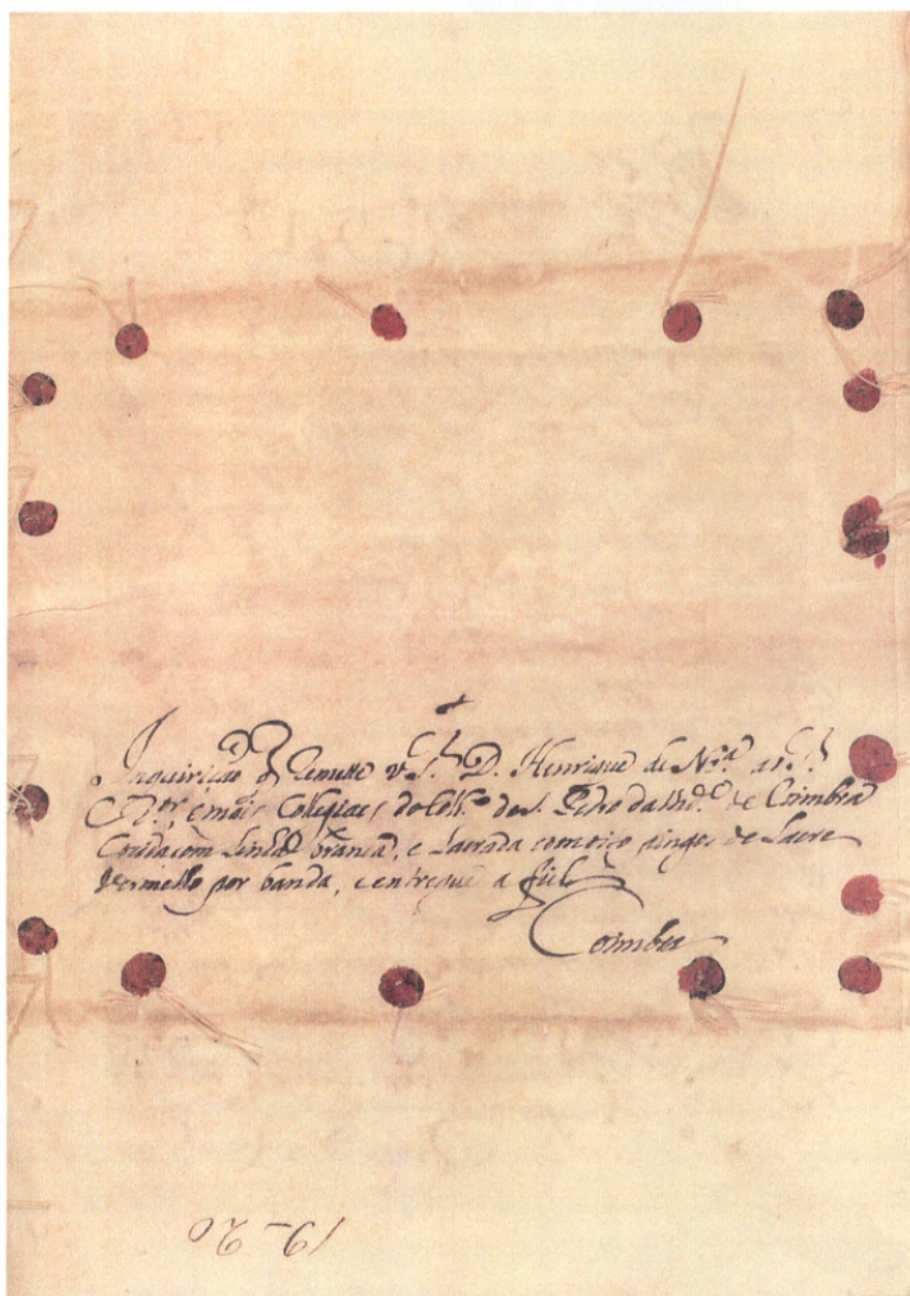 Inquirição q̃ Remette o S.ʳ D. Henrique de Nrª. ao S.ʳ
R.ᵒʳ, e mais Collegiaes do Coll.º de S. Pedro da Un.ᵈᵉ de Coimbra
Cosida com Linha branca, e Lacrada com oito pingos de Lacre
Vermelho por banda, e entregue a fiel
Coimbra
19-20